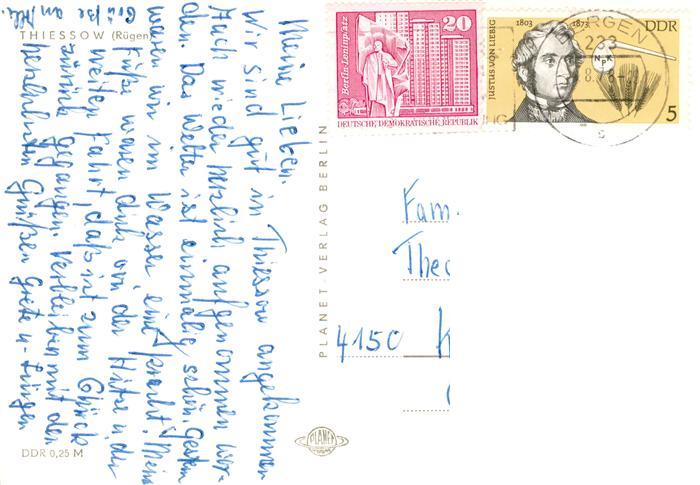 THIESSOW (Rügen)
Meine Lieben.
Wir sind gut in Thiessow angekommen
Auch wieder herzlich aufgenommen wor-
den. Das Wetter ist einmalig schön. Gestern
waren wir im Wasser eine Pracht! Meine
Füße waren dick von der Hitze u. der
weiten Fahrt, daß ist zum Glück
zurück gegangen. Verbleiben mit den
herzlichsten Grüßen Grete u. Jürgen
Grüße an
DDR 0,25 M
PLANET-VERLAG BERLIN
PLANET
Berlin-Leninplatz
20
DEUTSCHE DEMOKRATISCHE REPUBLIK
JUSTUS VON LIEBIG
1803 1873
DDR
NPK
5
BERGEN
233
Fam.
4150 K